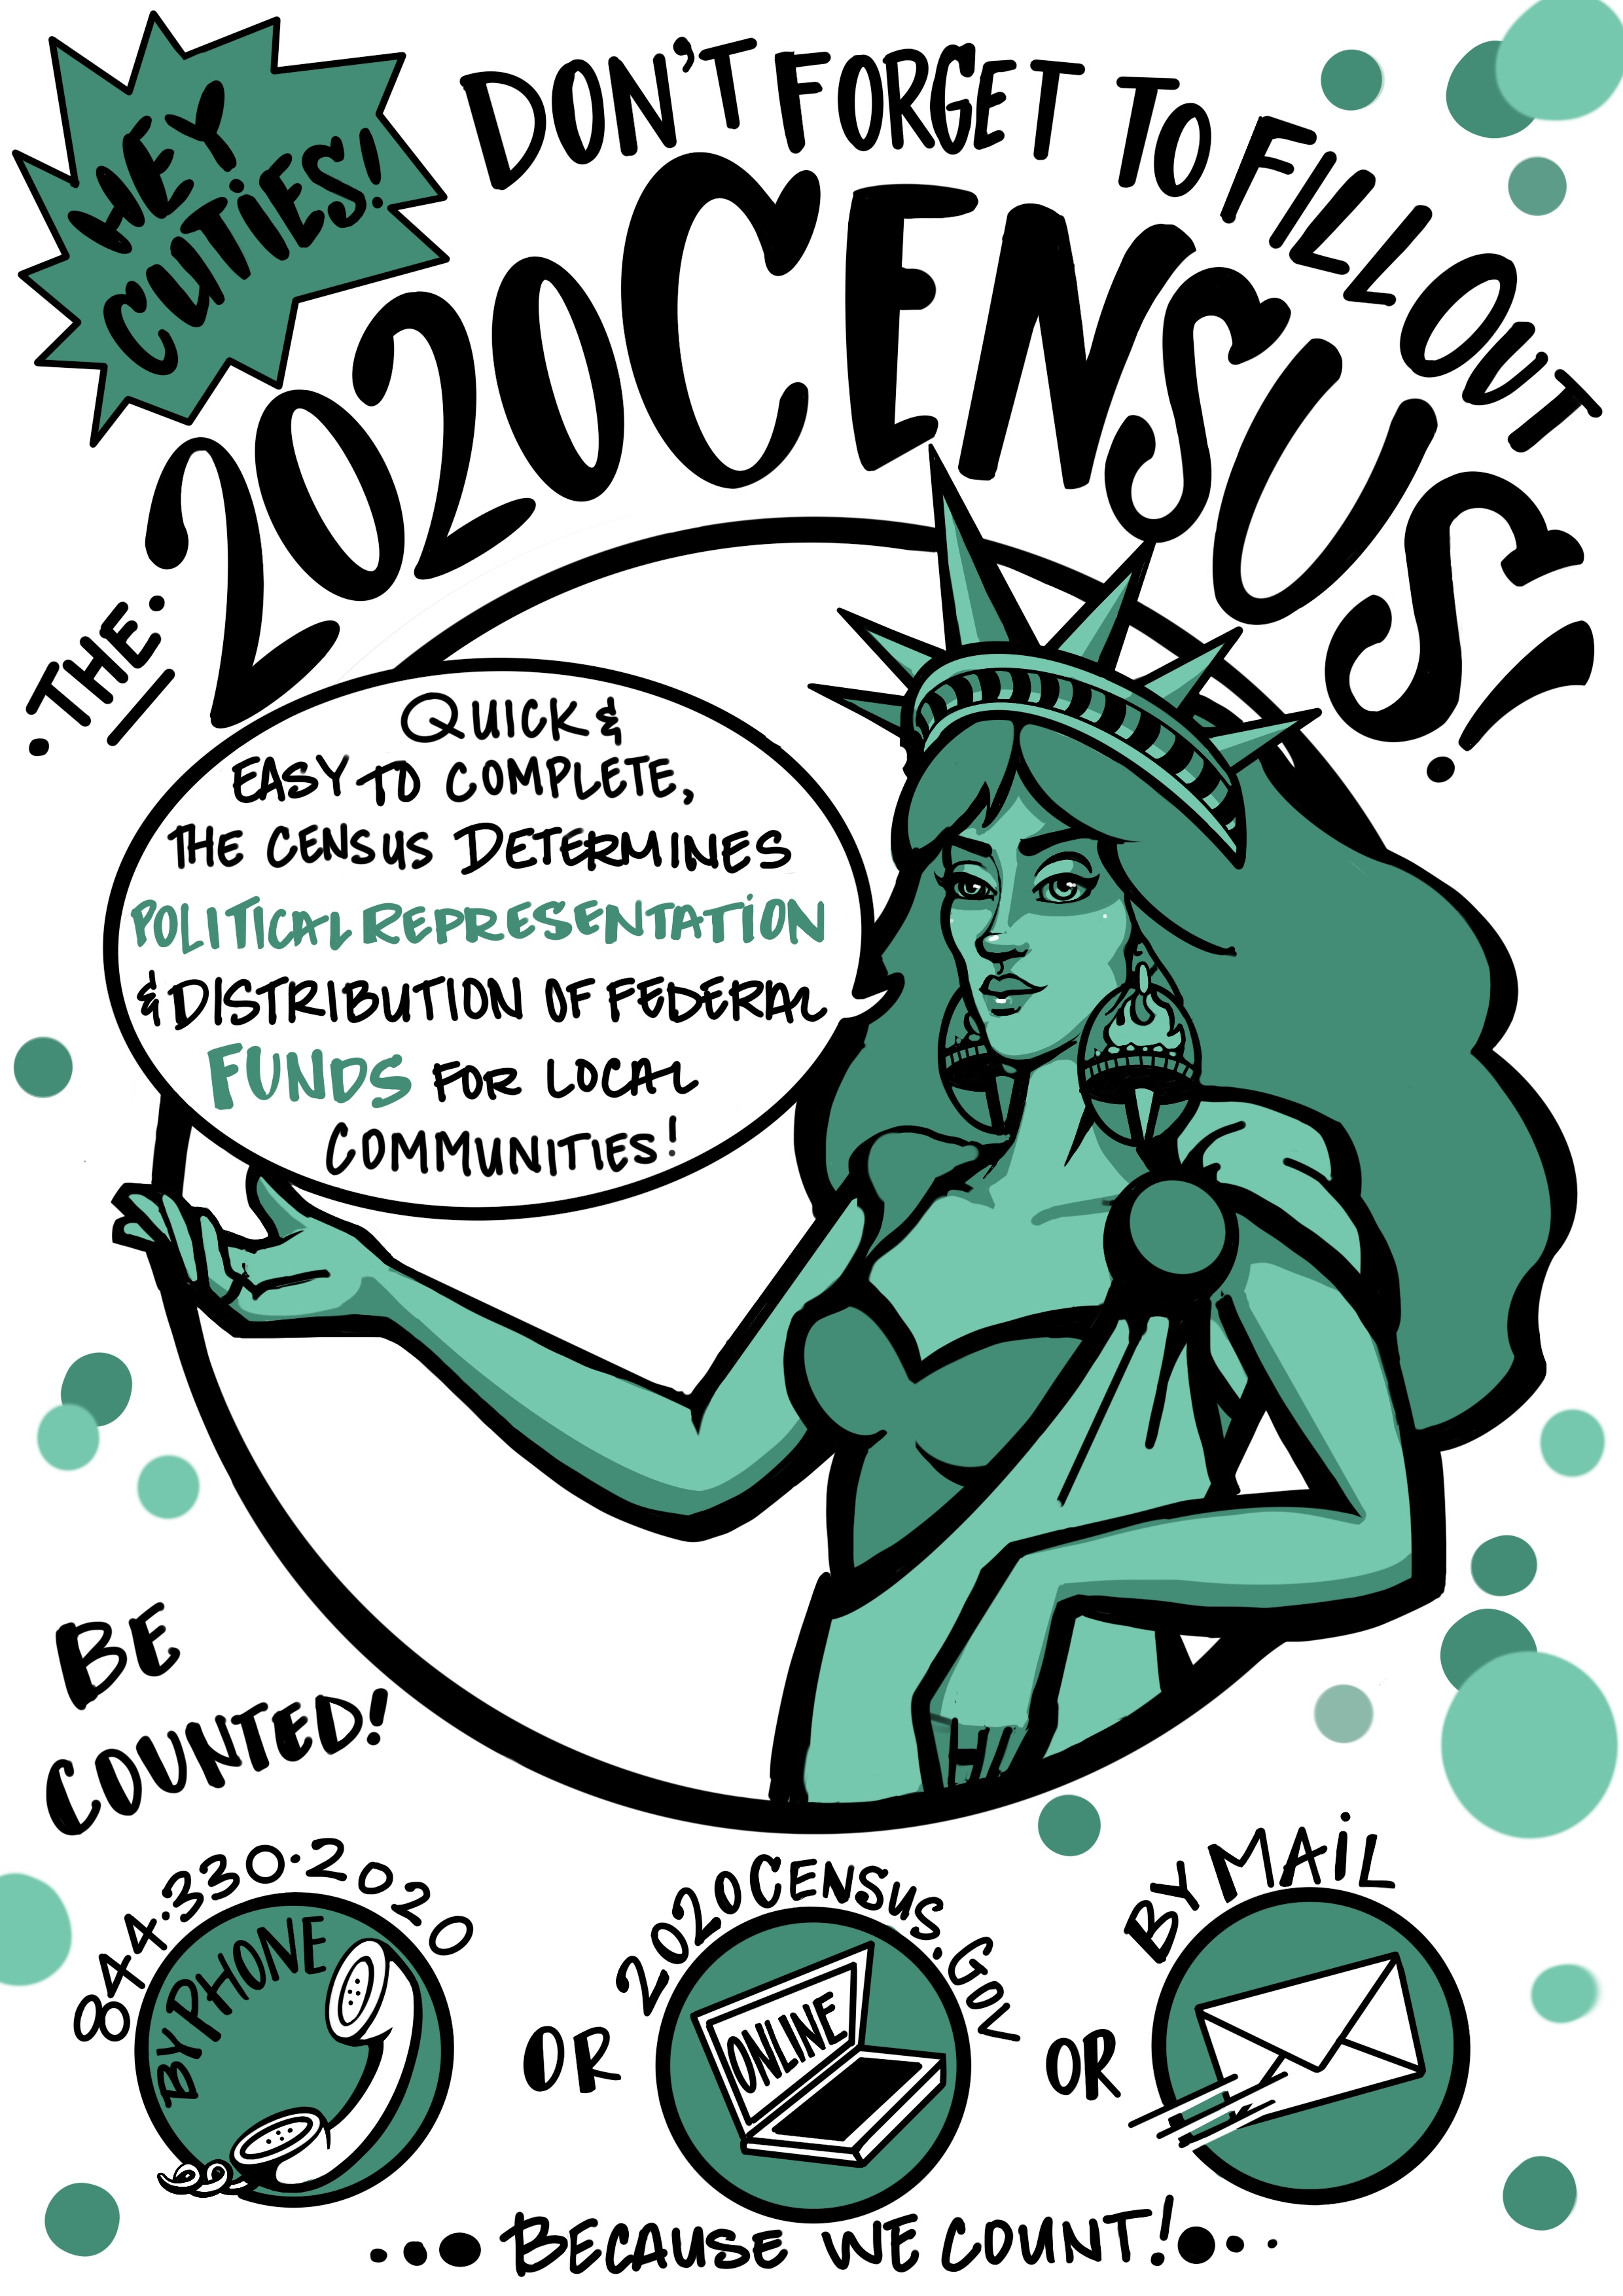 HEY
CUTIES!
DON'T FORGET TO FILL OUT
•THE:
2020 CENSUS!
QUICK &
EASY TO COMPLETE,
THE CENSUS DETERMINES
POLITICAL REPRESENTATION
& DISTRIBUTION OF FEDERAL
FUNDS FOR LOCAL
COMMUNITIES!
BE
COUNTED!
844·330·2020
BY PHONE
OR
2020CENSUS.GOV
ONLINE
OR
BY MAIL
...BECAUSE WE COUNT!...